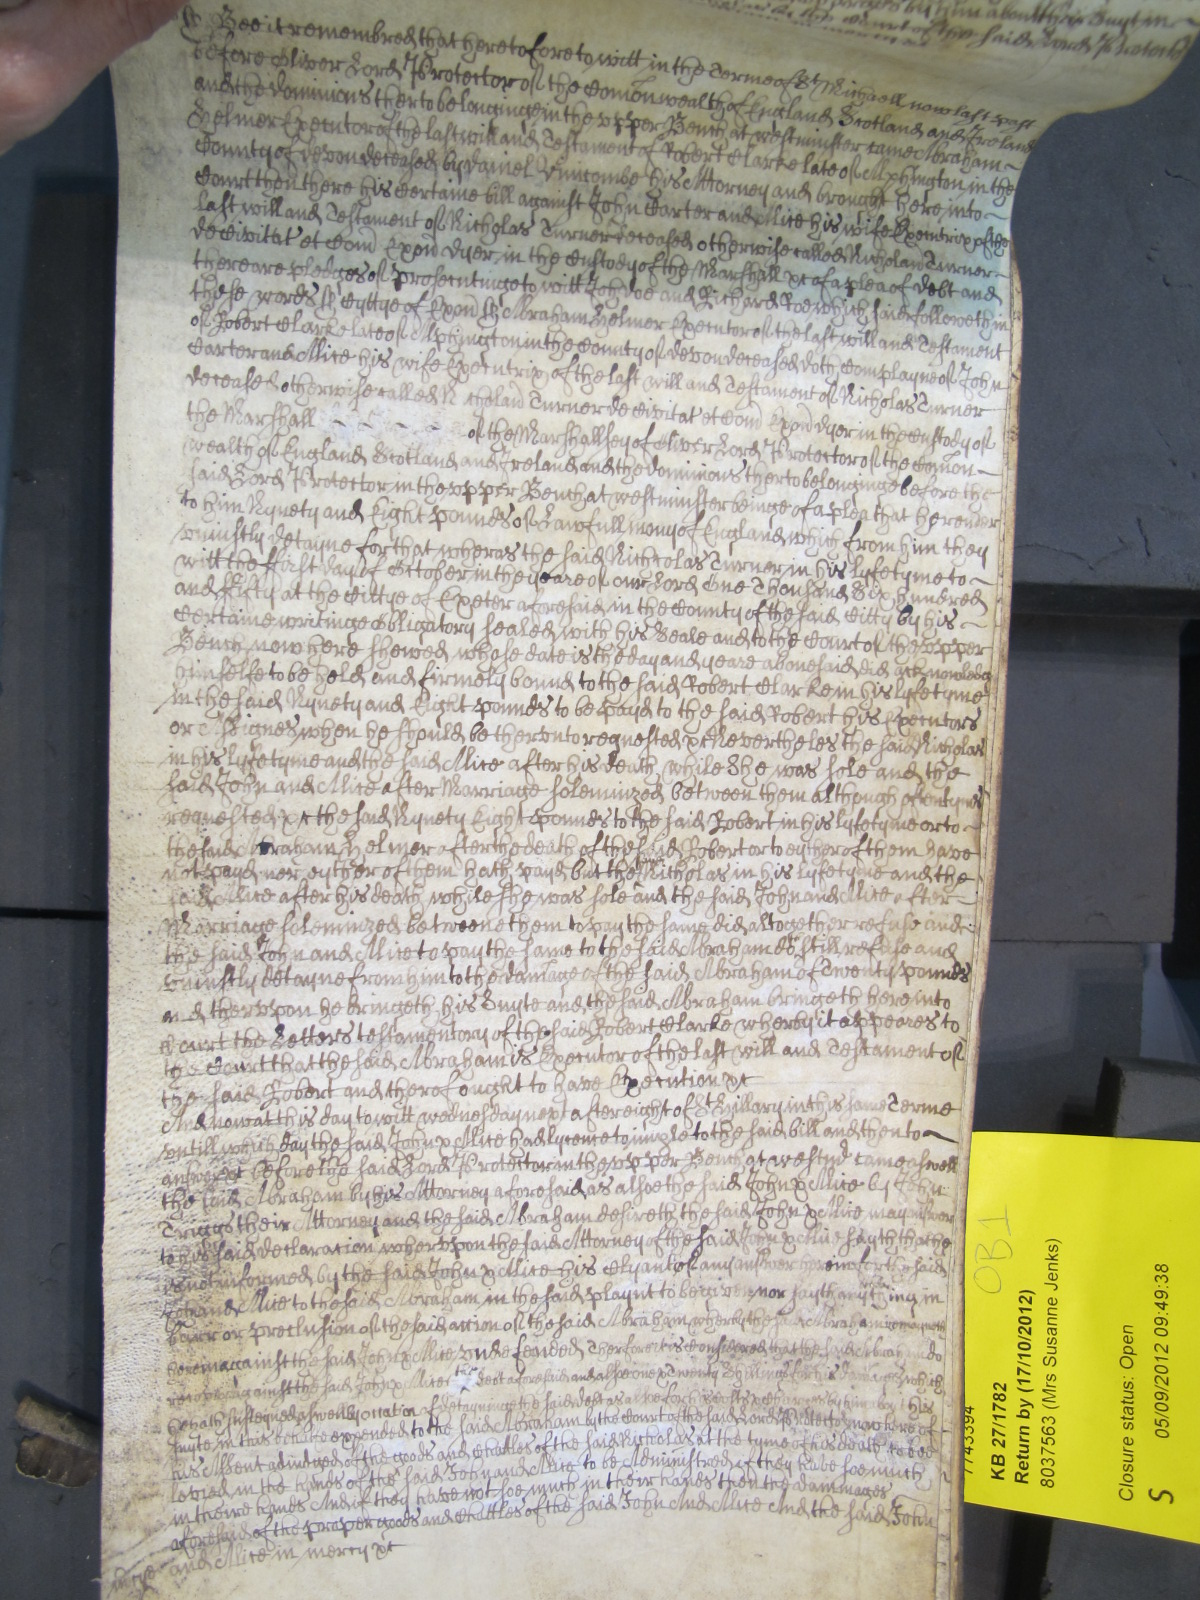 Bee it remembred that heretofore to witt in the Terme of St Michaell now last past
before Oliver Lord Protector of the Comonwealth of England Scotland and Ireland
and the dominions therto belonginge in the vpper Bench at westminster came Abraham
Helmer Executor of the last will and Testament of Robert Clarke late of Alphington in the
County of Devon deceased by Daniel Vinicombe his Attorney and brought here into
Court then there his Certaine bill against John Carter and Alice his wife Executrix of the
last will and Testament of Nicholas Turner deceased otherwise called Nicholau Turner
de Civitat et Com Exon dyer, in the Custody of the Marshall xc of a plea of debt and
there are pledges of prosecutinge to witt John doe and Richard Roe which said followeth in
these words ss Cyttye of Exon ss Abraham Helmer Executor of the last will and Testament
of Robert Clarke late of Alphington in the County of devon deceased doth Complayne of John
Carter and Alice his wife Executrix of the last will and Testament of Nicholas Turner
deceased otherwise called Nicholau Turner de Civitat et Com Exon dyer in the Custody of
the Marshall of the Marshallsey of Oliver Lord Protector of the Comon
wealth of England Scotland and Ireland and the dominions therto belonginge before the
said Lord Protector in the vpper Bench at westminster beinge of a plea that he render
to him Nynety and Eight pounds of Lawfull mony of England which from him they
vniustly detayne for that wheras the said Nicholas Turner in his lyfetyme to
witt the first day of October in the yeare of our Lord One Thousand Six hundred
and fifty at the Cittye of Exeter aforesaid in the County of the said Citty by his
Certaine writinge obligatory sealed with his Seale and to the Court of the vpper
Bench now here shewed whose date is the day and yeare abovesaid did acknowledg
himselfe to be held and firmely bound to the said Robert Clarke in his lyfetyme
in the said Nynety and Eight pounds to be payd to the said Robert his Executors
or Assignes when he should be thervnto requested xc Nevertheles the said Nicholas
in his lyfetyme and the said Alice after his death while she was sole and the
said John and Alice after Marriage soleminized between them although oftentymes
requested xc the said Nynety Eight pounds to the said Robert in his lyfetyme or to
the said Abraham Helmer after the death of the said Robert or to eyther of them have
not payd nor eyther of them hath payd but the said Nicholas in his lyfetyme and the
said Alice after his death while she was sole and the said John and Alice after
Marriage soleminized betweene them to pay the same did altogether refuse and
the said John and Alice to pay the same to the said Abraham do still refuse and
vniustly detayne from him to the damage of the said Abraham of Twenty pounds
and thervpon he bringeth his Suyte and the said Abraham bringeth here into
Court the Letters testamentory of the said Robert Clarke wherby it appeares to
the Court that the said Abraham is Executor of the last will and Testament of
the said Robert and therof ought to have Execution xc
And now at this day to witt wednesday next after eight of St Hillary in this same Terme
vntill which day the said John & Alice had lycence to imple to the said bill and then to
answere xc before the said Lord Protector in the vpper Bench at westm came aswell
the said Abraham by his Attorney aforesaid as alsoe the said John & Alice by John
Triggs their Attorney and the said Abraham desireth the said John & Alice may answer
to his said declaration whervpon the said Attorney of the said John & Alice sayth that he
is not informed by the said John & Alice his Clyants of any answer herein for the said
John and Alice to the said Abraham in the said playnt to be given nor sayth any thing in
barr or preclusion of the said action of the said Abraham wherby the said Abraham remayneth
herein against the said John & Alice vndefended Therfore it is Considered that the said Abraham do
recover against the said John & Alice the debt aforesaid and alsoe
he hath susteyned aswell by occation of detayninge the said debt as alsoe for his Costs & Charges by him about his
suyte in this behalfe expended to the said Abraham by the Court of the said Lord Protector now here of
his Assent adiudged of the goods and Chattles of the said Nicholas at the tyme of his death to bee
levied in the hands of the said John and Alice to be Administred if they have soe much
in theire hands And if they have not soe much in their hands then the dammages
aforesaid of the proper goods and Chattles of the said John And Alice And the said John
and Alice in mercy xc
OB1
KB 27/1782
Return by (17/10/2012)
8037563 (Mrs Susanne Jenks)
Closure status: Open
05/09/2012 09:49:38
S